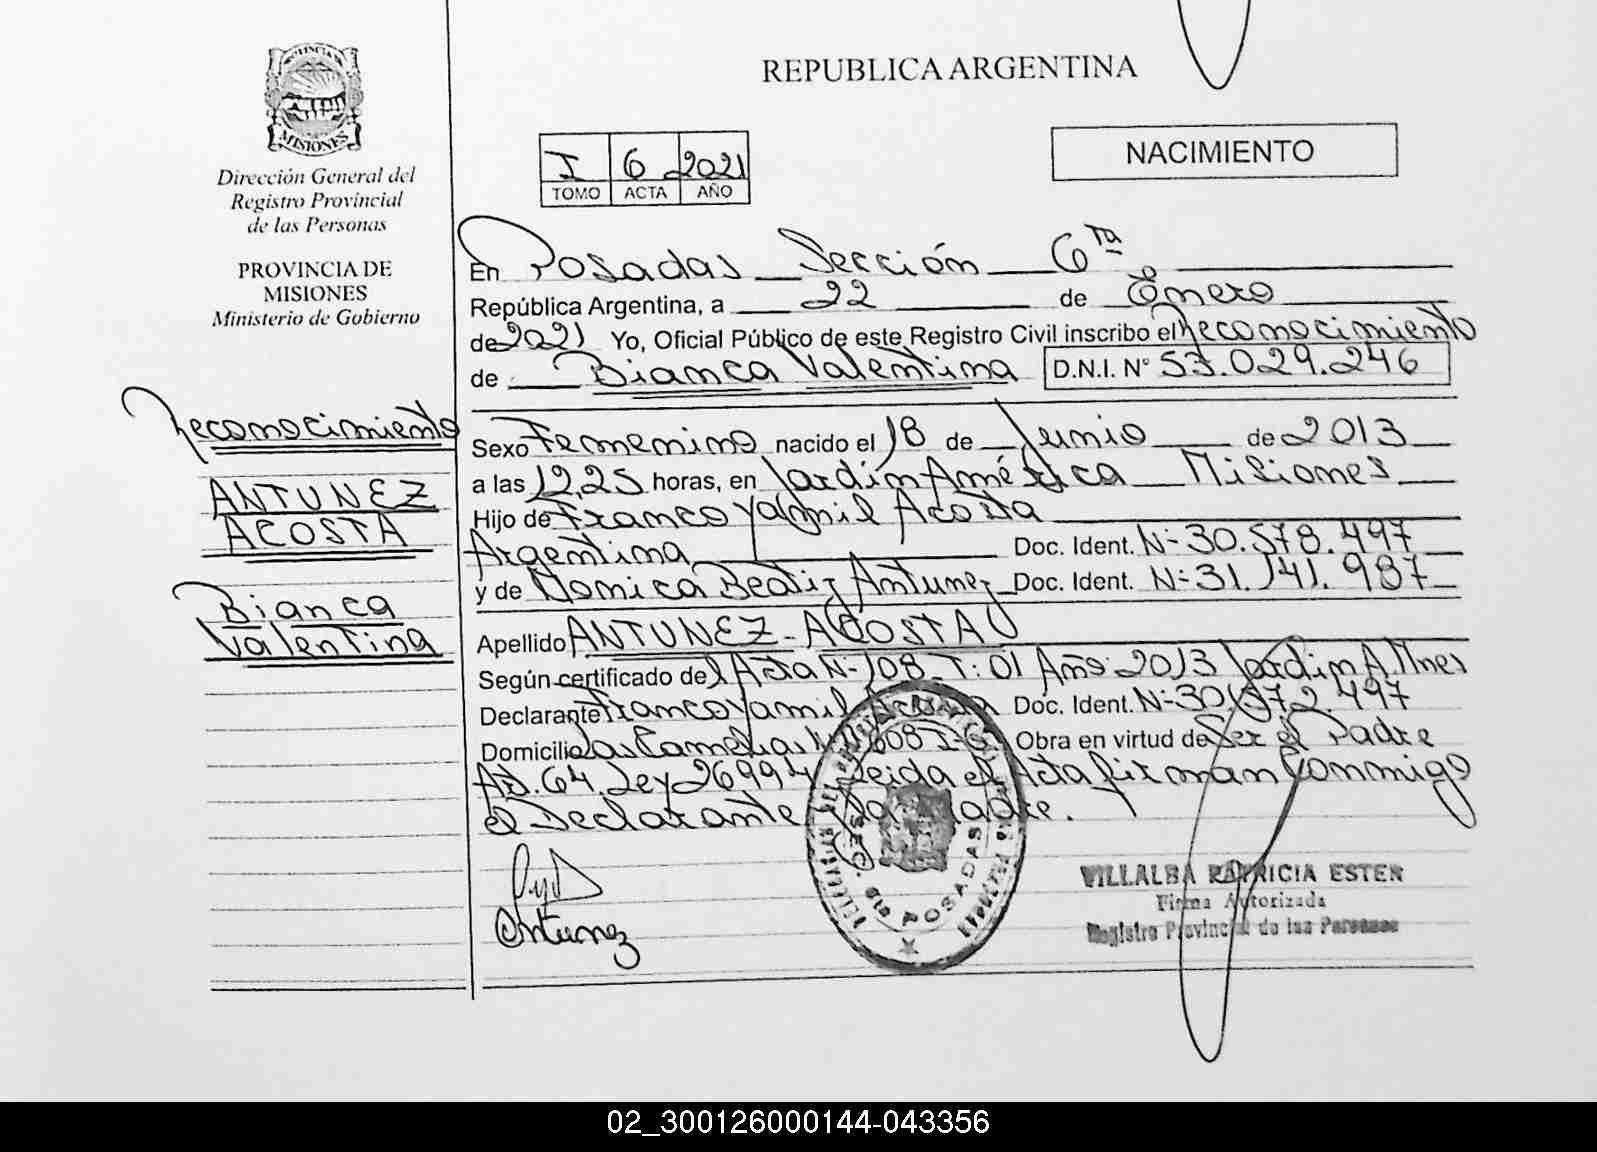 PROVINCIA DE
MISIONES
Dirección General del
Registro Provincial
de las Personas
PROVINCIA DE
MISIONES
Ministerio de Gobierno
Reconocimiento
ANTUNEZ
ACOSTA
Bianca
Valentina
REPUBLICA ARGENTINA
I 6 2021
TOMO ACTA AÑO
NACIMIENTO
En Posadas Sección 6ta
República Argentina, a 22 de Enero
de 2021 Yo, Oficial Público de este Registro Civil inscribo el Reconocimiento
de Bianca Valentina D.N.I. N° 53.029.246
Sexo Femenino nacido el 18 de Junio de 2013
a las 12,25 horas, en Jardín América Misiones
Hijo de Franco Yamil Acosta
Argentina Doc. Ident. N- 30.578.497
y de Monica Beatriz Antunez Doc. Ident. N- 31.141.987
Apellido ANTUNEZ - ACOSTA
Según certificado del Acta N- 108 T: 01 Año 2013 Jardin A Mnes
Declarante Franco Yamil Doc. Ident. N- 30.572.497
Domicilio Las Camelias Obra en virtud de Ser el Padre
Art. 64. Ley 26994 Leida el Acta firman Conmigo
el Declarante Madre.
Antunez
SECC. 6ta POSADAS
VILLALBA PATRICIA ESTER
Firma Autorizada
Registro Provincial de las Personas
02_300126000144-043356